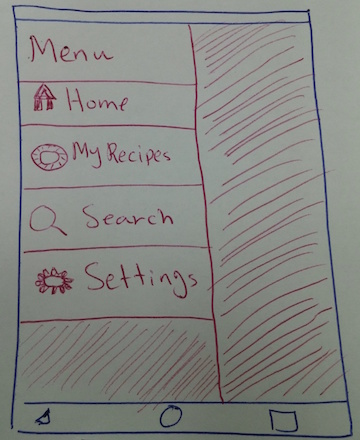 Menu
Home
My Recipes
Search
Settings